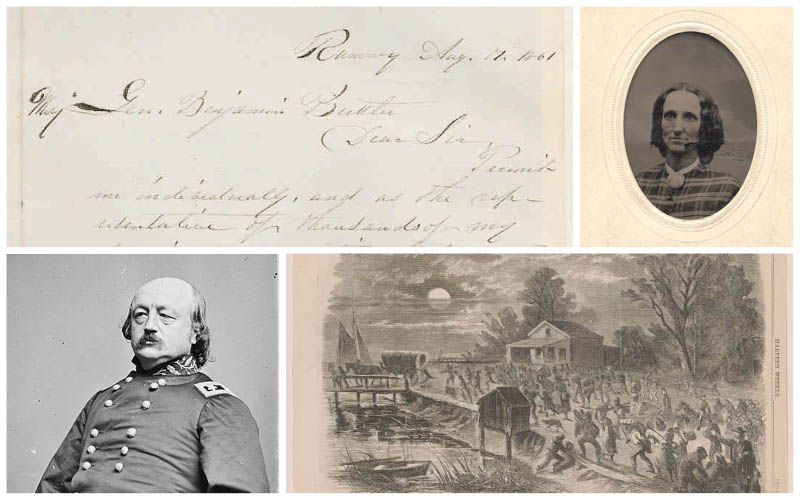 Rumney Aug. 17. 1861
Maj. Gen. Benjamin Butler
Dear Sir,
Permit
me individually, and as the rep-
resentative of thousands of my
HARPERS WEEKLY